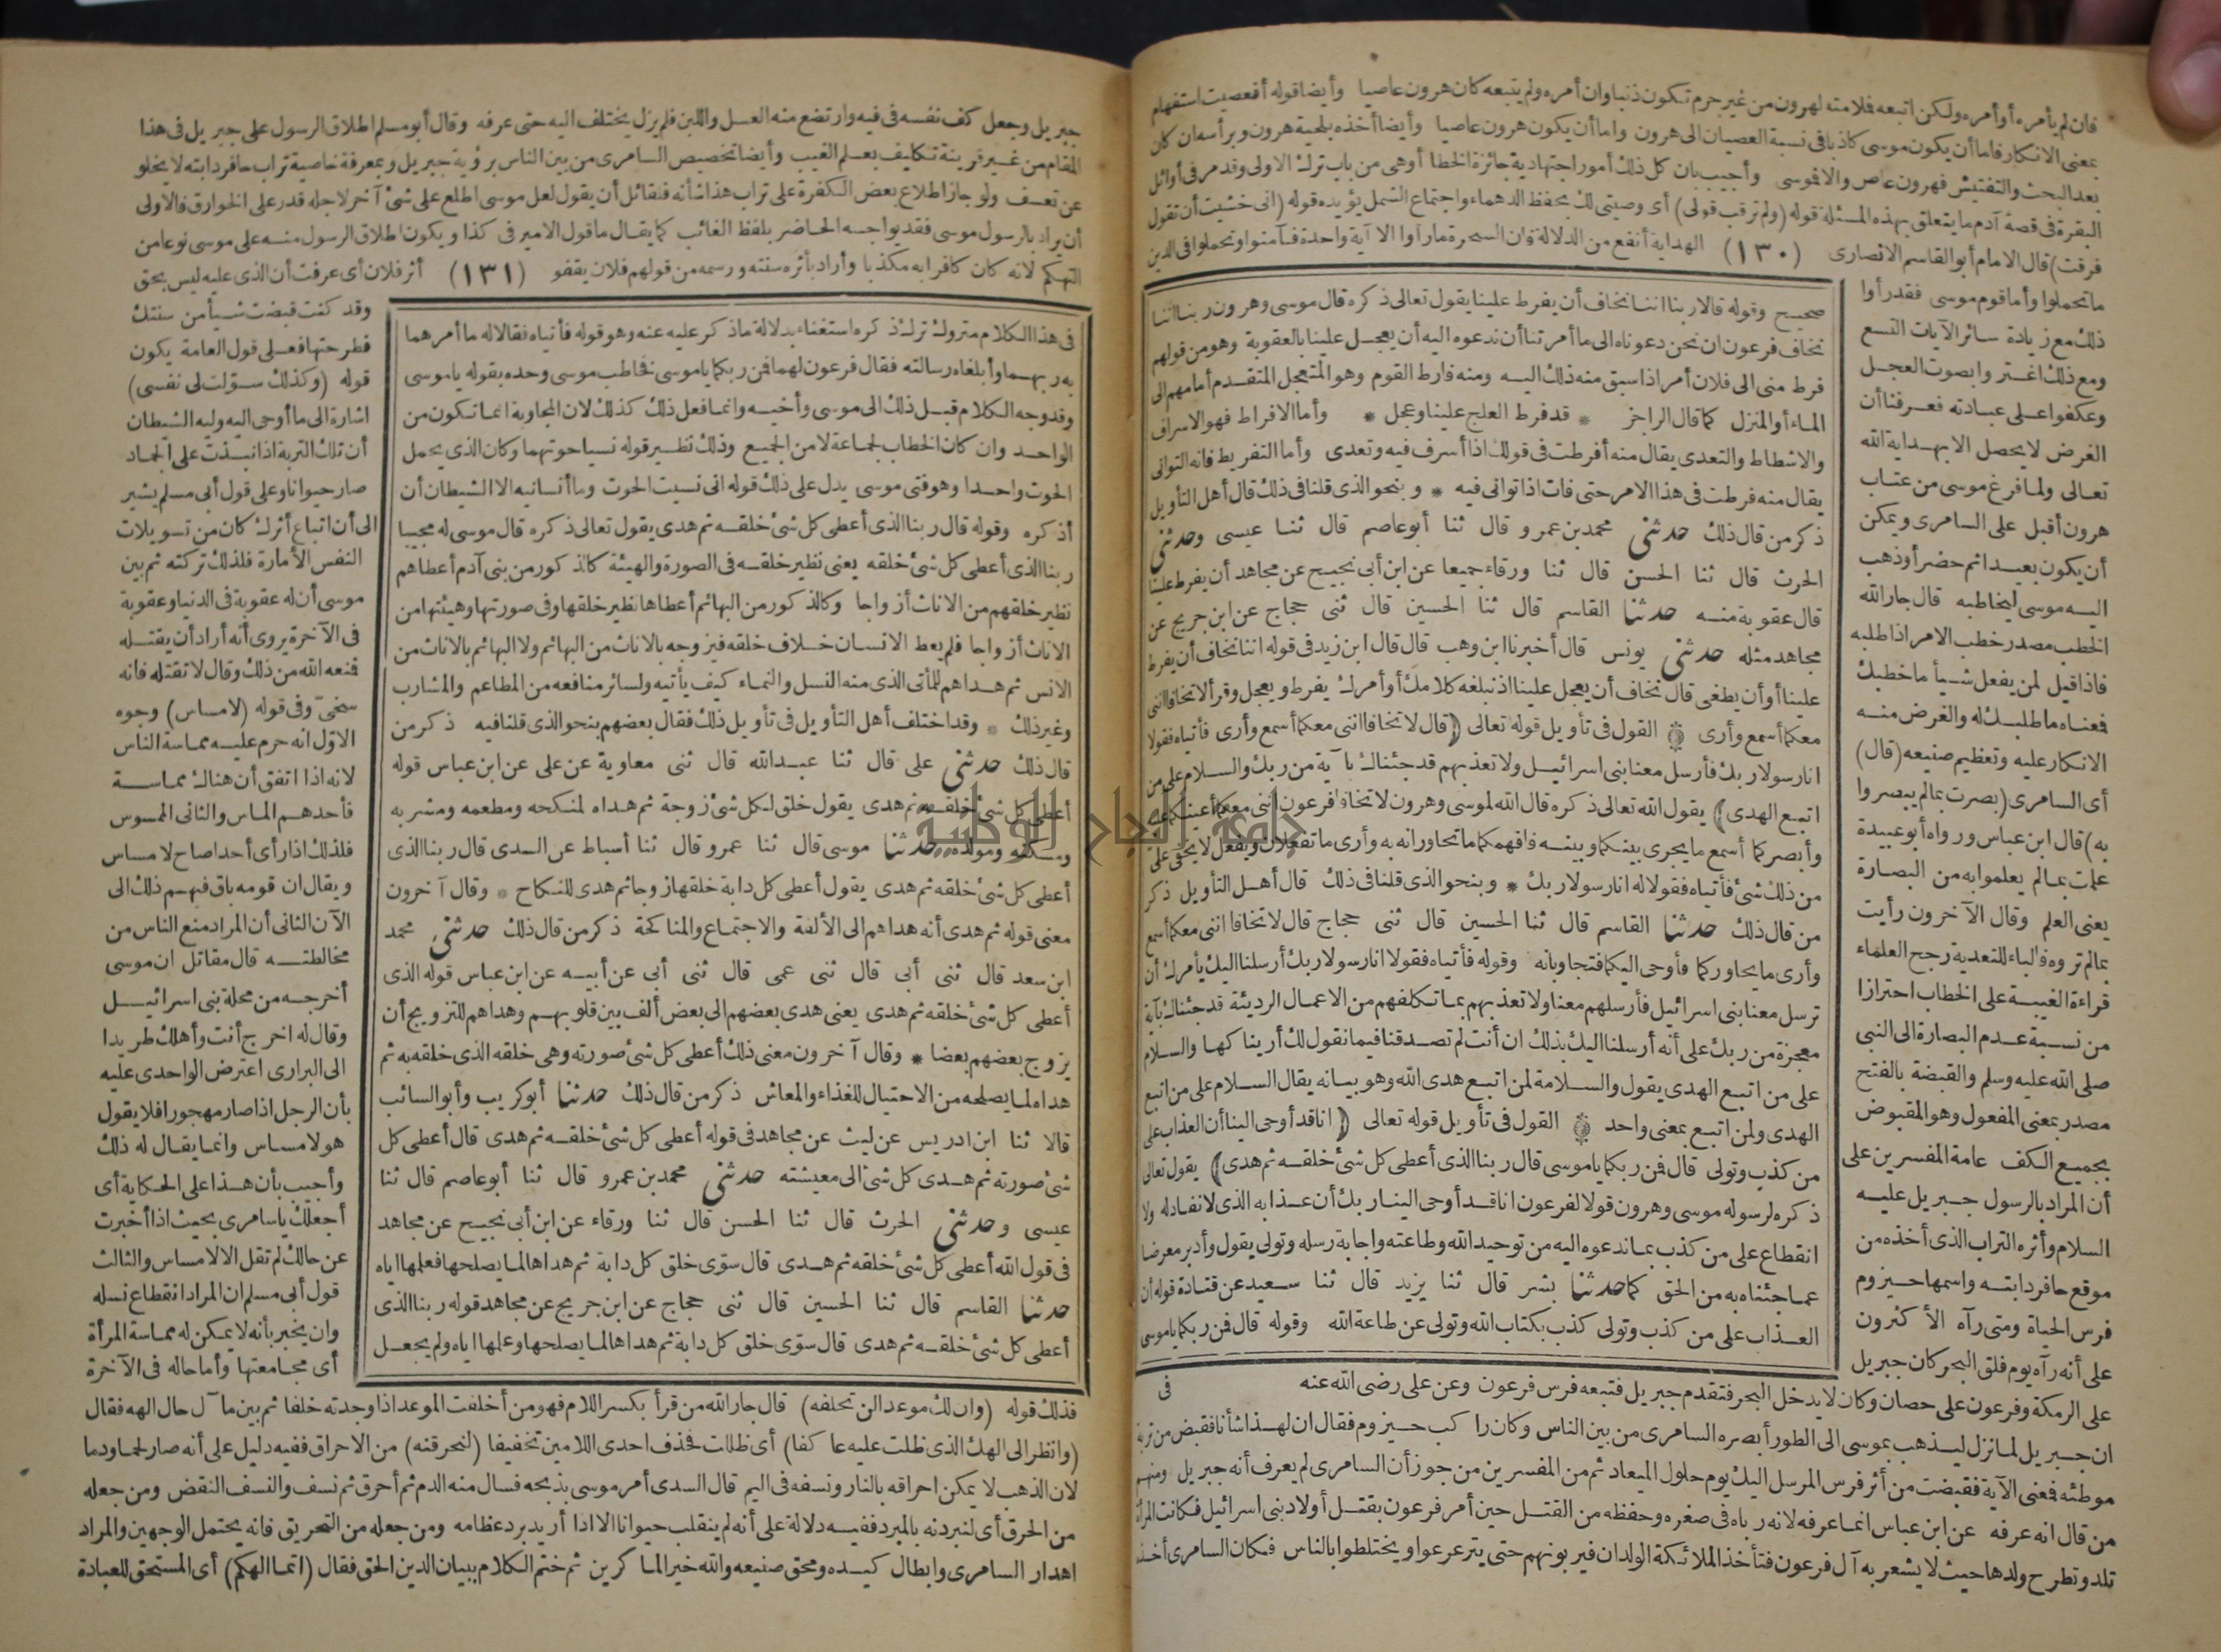 فان لم يأمره أو أمره ولكن اتبعه فلامته لهرون من غير جرم تكون ذنبا وان أمره ولم يتبعه كان هرون عاصيا وأيضا قوله أفعصيت استفهام
بمعنى الانكار فاما أن يكون موسى كاذبا فى نسبة العصيان الى هرون واما أن يكون هرون عاصيا وأيضا أخذه بلحية هرون وبرأسه ان كان
بعد البحث والتفتيش فهرون عاص والا فموسى وأجيب بان كل ذلك أمور اجتهادية جائزة الخطا أو هى من باب ترك الاولى وقد مر فى أوائل
البقرة فى قصة آدم ما يتعلق بهذه المسئلة قوله (ولم ترقب قولى) أى وصيتى لك بحفظ الدهماء واجتماع الشمل يؤيده قوله (انى خشيت أن تقول
فرقت) قال الامام أبو القاسم الانصارى (١٣٠) الهداية أنفع من الدلالة فان السحرة ما رأوا الا آية واحدة فآمنوا وتحملوا فى الدين
ما تحملوا وأما قوم موسى فقد رأوا
ذلك مع زيادة سائر الآيات التسع
ومع ذلك اغتروا بصوت العجل
وعكفوا على عبادته فعرفنا أن
الغرض لا يحصل الا بهداية الله
تعالى ولما فرغ موسى من عتاب
هرون أقبل على السامرى ويمكن
أن يكون بعيدا ثم حضر أو ذهب
اليه موسى ليخاطبه قال جار الله
الخطب مصدر خطب الامر اذا طلبه
فاذا قيل لمن يفعل شيأ ما خطبك
فمعناه ما طلبك له والغرض منه
الانكار عليه وتعظيم صنيعه (قال)
أى السامرى (بصرت بما لم يبصروا
به) قال ابن عباس ورواه أبو عبيدة
علمت بما لم يعلموا به من البصارة
يعنى العلم وقال الآخرون رأيت
بما لم تروه فالباء للتعدية رجح العلماء
قراءة الغيبة على الخطاب احترازا
من نسبة عدم البصارة الى النبى
صلى الله عليه وسلم والقبضة بالفتح
مصدر بمعنى المفعول وهو المقبوض
بجميع الكف عامة المفسرين على
أن المراد بالرسول جبريل عليه
السلام وأثره التراب الذى أخذه من
موقع حافر دابته واسمها حيزوم
فرس الحياة ومتى رآه الأكثرون
على أنه رآه يوم فلق البحر كان جبريل
صحيح وقوله قالا ربنا اننا نخاف أن يفرط علينا يقول تعالى ذكره قال موسى وهرون ربنا اننا
نخاف فرعون ان نحن دعوناه الى ما أمرتنا أن ندعوه اليه أن يعجل علينا بالعقوبة وهو من قولهم
فرط منى الى فلان أمر اذا سبق منه ذلك اليه ومنه فارط القوم وهو المتعجل المتقدم أمامهم الى
الماء أو المنزل كما قال الراجز * قد فرط العلج علينا وعجل * وأما الافراط فهو الاسراف
والاشطاط والتعدى يقال منه أفرطت فى قولك اذا أسرف فيه وتعدى وأما التفريط فانه التوانى
يقال منه فرطت فى هذا الامر حتى فات اذا توانى فيه * وبنحو الذى قلنا فى ذلك قال أهل التأويل
ذكر من قال ذلك حدثنى محمد بن عمرو قال ثنا أبو عاصم قال ثنا عيسى وحدثنى
الحرث قال ثنا الحسن قال ثنا ورقاء جميعا عن ابن أبى نجيح عن مجاهد أن يفرط علينا
قال عقوبة منه حدثنا القاسم قال ثنا الحسين قال ثنى حجاج عن ابن جريج عن
مجاهد مثله حدثنى يونس قال أخبرنا ابن وهب قال قال ابن زيد فى قوله اننا نخاف أن يفرط
علينا أو أن يطغى قال نخاف أن يعجل علينا اذ نبلغه كلامك أو أمرك يفرط ويعجل وقرأ لا تخافا اننى
معكما أسمع وأرى القول فى تأويل قوله تعالى (قال لا تخافا اننى معكما أسمع وأرى فأتياه فقولا
انا رسولا ربك فأرسل معنا بنى اسرائيل ولا تعذبهم قد جئناك بآية من ربك والسلام على من
اتبع الهدى) يقول الله تعالى ذكره قال الله لموسى وهرون لا تخافا فرعون اننى معكما أعينكما عليه
وأبصركما أسمع ما يجرى بينكما وبينه فافهمكما ما تحاورانه به وأرى ما تفعلان ويفعل لا يخفى على
من ذلك شئ فأتياه فقولا له انا رسولا ربك * وبنحو الذى قلنا فى ذلك قال أهل التأويل ذكر
من قال ذلك حدثنا القاسم قال ثنا الحسين قال ثنى حجاج قال لا تخافا اننى معكما أسمع
وأرى ما يحاوركما فأوحى اليكما فتجاوبانه وقوله فأتياه فقولا انا رسولا ربك أرسلنا اليك يأمرك أن
ترسل معنا بنى اسرائيل فأرسلهم معنا ولا تعذبهم بما تكلفهم من الاعمال الرديئة قد جئناك بآية
معجزة من ربك على أنه أرسلنا اليك بذلك ان أنت لم تصدقنا فيما نقول لك أريناكها والسلام
على من اتبع الهدى يقول والسلامة لمن اتبع هدى الله وهو بيانه يقال السلام على من اتبع
الهدى ولمن اتبع بمعنى واحد القول فى تأويل قوله تعالى (انا قد أوحى الينا أن العذاب على
من كذب وتولى قال فمن ربكما يا موسى قال ربنا الذى أعطى كل شئ خلقه ثم هدى) يقول تعالى
ذكره لرسوله موسى وهرون قولا لفرعون انا قد أوحى الينا ربك أن عذابه الذى لا نفاد له ولا
انقطاع على من كذب بما ندعوه اليه من توحيد الله وطاعته واجابة رسله وتولى يقول وأدبر معرضا
عما جئناه به من الحق كما حدثنا بشر قال ثنا يزيد قال ثنا سعيد عن قتادة قوله أن
العذاب على من كذب وتولى كذب بكتاب الله وتولى عن طاعة الله وقوله قال فمن ربكما يا موسى
فى
على الرمكة وفرعون على حصان وكان لا يدخل البحر فتقدم جبريل فتبعه فرس فرعون وعن على رضى الله عنه
ان جبريل لما نزل ليذهب بموسى الى الطور أبصره السامرى من بين الناس وكان راكب حيزوم فقال ان لهذا شأنا فقبض من تربة
موطئه فمعنى الآية فقبضت من أثر فرس المرسل اليك يوم حلول الميعاد ثم من المفسرين من جوز أن السامرى لم يعرف أنه جبريل ومنهم
من قال انه عرفه عن ابن عباس انما عرفه لانه رباه فى صغره وحفظه من القتل حين أمر فرعون بقتل أولاد بنى اسرائيل فكانت المرأة
تلد وتطرح ولدها حيث لا يشعر به آل فرعون فتأخذ الملائكة الولدان فيربونهم حتى يترعرعوا ويختلطوا بالناس فكان السامرى أخذه
جبريل وجعل كف نفسه فى فيه وارتضع منه العسل واللبن فلم يزل يختلف اليه حتى عرفه وقال أبو مسلم اطلاق الرسول على جبريل فى هذا
المقام من غير قرينة تكليف بعلم الغيب وأيضا تخصيص السامرى من بين الناس برؤية جبريل وبمعرفة خاصية تراب حافر دابته لا يخلو
عن تعسف ولو جاز اطلاع بعض الكفرة على تراب هذا شأنه فلقائل أن يقول لعل موسى اطلع على شئ آخر لاجله قدر على الخوارق فالاولى
أن يراد بالرسول موسى فقد يواجه الحاضر بلفظ الغائب كما يقال ما قول الامير فى كذا ويكون اطلاق الرسول منه على موسى نوعا من
التهكم لانه كان كافرا به مكذبا وأراد بأثره سنته ورسمه من قولهم فلان يقفو (١٣١) أثر فلان أى عرفت أن الذى عليه ليس بحق
فى هذا الكلام متروك ترك ذكره استغناء بدلالة ما ذكر عليه عنه وهو قوله فأتياه فقالا له ما أمرهما
به ربهما وأبلغاه رسالته فقال فرعون لهما فمن ربكما يا موسى فخاطب موسى وحده بقوله يا موسى
وقد وجه الكلام قبل ذلك الى موسى وأخيه وانما فعل ذلك كذلك لان المجاوبة انما تكون من
الواحد وان كان الخطاب لجماعة لا من الجميع وذلك نظير قوله نسيا حوتهما وكان الذى يحمل
الحوت واحدا وهو فتى موسى يدل على ذلك قوله انى نسيت الحوت وما أنسانيه الا الشيطان أن
أذكره وقوله قال ربنا الذى أعطى كل شئ خلقه ثم هدى يقول تعالى ذكره قال موسى له مجيبا
ربنا الذى أعطى كل شئ خلقه يعنى نظير خلقه فى الصورة والهيئة كالذكور من بنى آدم أعطاهم
نظير خلقهم من الاناث أزواجا وكالذكور من البهائم أعطاها نظير خلقها وفى صورتها وهيئتها من
الاناث أزواجا فلم يعط الانسان خلاف خلقه فيزوجه بالاناث من البهائم ولا البهائم بالاناث من
الانس ثم هداهم للمأتى الذى منه النسل والنماء كيف يأتيه ولسائر منافعه من المطاعم والمشارب
وغير ذلك * وقد اختلف أهل التأويل فى تأويل ذلك فقال بعضهم بنحو الذى قلنا فيه ذكر من
قال ذلك حدثنى على قال ثنا عبدالله قال ثنى معاوية عن على عن ابن عباس قوله
أعطى كل شئ خلقه ثم هدى يقول خلق لكل شئ زوجة ثم هداه لمنكحه ومطعمه ومشربه
ومسكنه ومولده حدثنا موسى قال ثنا عمرو قال ثنا أسباط عن السدى قال ربنا الذى
أعطى كل شئ خلقه ثم هدى يقول أعطى كل دابة خلقها زوجا ثم هدى للنكاح * وقال آخرون
معنى قوله ثم هدى أنه هداهم الى الألفة والاجتماع والمناكحة ذكر من قال ذلك حدثنى محمد
ابن سعد قال ثنى أبى قال ثنى عمى قال ثنى أبى عن أبيه عن ابن عباس قوله الذى
أعطى كل شئ خلقه ثم هدى يعنى هدى بعضهم الى بعض ألف بين قلوبهم وهداهم للتزويج أن
يزوج بعضهم بعضا * وقال آخرون معنى ذلك أعطى كل شئ صورته وهى خلقه الذى خلقه به ثم
هداه لما يصلحه من الاحتيال للغذاء والمعاش ذكر من قال ذلك حدثنا أبو كريب وأبو السائب
قالا ثنا ابن ادريس عن ليث عن مجاهد فى قوله أعطى كل شئ خلقه ثم هدى قال أعطى كل
شئ صورته ثم هدى كل شئ الى معيشته حدثنى محمد بن عمرو قال ثنا أبو عاصم قال ثنا
عيسى وحدثنى الحرث قال ثنا الحسن قال ثنا ورقاء عن ابن أبى نجيح عن مجاهد
فى قول الله أعطى كل شئ خلقه ثم هدى قال سوّى خلق كل دابة ثم هداها لما يصلحها فعلمها اياه
حدثنا القاسم قال ثنا الحسين قال ثنى حجاج عن ابن جريج عن مجاهد قوله ربنا الذى
أعطى كل شئ خلقه ثم هدى قال سوّى خلق كل دابة ثم هداها لما يصلحها وعلمها اياه ولم يجعل
وقد كنت قبضت شيأ من سنتك
فطرحتها فعلى قول العامة يكون
قوله (وكذلك سوّلت لى نفسى)
اشارة الى ما أوحى اليه وليه الشيطان
أن تلك التربة اذا نبذت على الجماد
صار حيوانا وعلى قول أبى مسلم يشير
الى أن اتباع أثرك كان من تسويلات
النفس الأمارة فلذلك تركته ثم بين
موسى أن له عقوبة فى الدنيا وعقوبة
فى الآخرة يروى أنه أراد أن يقتله
فمنعه الله من ذلك وقال لا تقتله فانه
سخىّ وفى قوله (لا مساس) وجوه
الاوّل انه حرم عليه مماسة الناس
لانه اذا اتفق أن هناك مماسة
فأحدهم الماس والثانى الممسوس
فلذلك اذا رأى أحدا صاح لا مساس
ويقال ان قومه باق فيهم ذلك الى
الآن الثانى أن المراد منع الناس من
مخالطته قال مقاتل ان موسى
أخرجه من محلة بنى اسرائيل
وقال له اخرج أنت وأهلك طريدا
الى البرارى اعترض الواحدى عليه
بأن الرجل اذا صار مهجورا فلا يقول
هو لا مساس وانما يقال له ذلك
وأجيب بأن هذا على الحكاية أى
أجعلك يا سامرى بحيث اذا أخبرت
عن حالك لم تقل الا لا مساس والثالث
قول أبى مسلم ان المراد انقطاع نسله
وان يخبر بأنه لا يمكن له مماسة المرأة
أى مجامعتها وأما حاله فى الآخرة
فذلك قوله (وان لك موعدا لن تخلفه) قال جار الله من قرأ بكسر اللام فهو من أخلفت الموعد اذا وجدته خلفا ثم بين مآل حال الهه فقال
(وانظر الى الهك الذى ظلت عليه عاكفا) أى ظللت فحذف احدى اللامين تخفيفا (لنحرقنه) من الاحراق ففيه دليل على أنه صار لحما ودما
لان الذهب لا يمكن احراقه بالنار ونسفه فى اليم قال السدى أمر موسى بذبحه فسال منه الدم ثم أحرق ثم نسف والنسف النقض ومن جعله
من الحرق أى لنبردنه بالمبرد ففيه دلالة على أنه لم ينقلب حيوانا الا اذا أريد برد عظامه ومن جعله من التحريق فانه يحتمل الوجهين والمراد
اهدار السامرى وابطال كيده ومحق صنيعه والله خير الماكرين ثم ختم الكلام ببيان الدين الحق فقال (انما الهكم) أى المستحق للعبادة
جامعة النجاح الوطنية